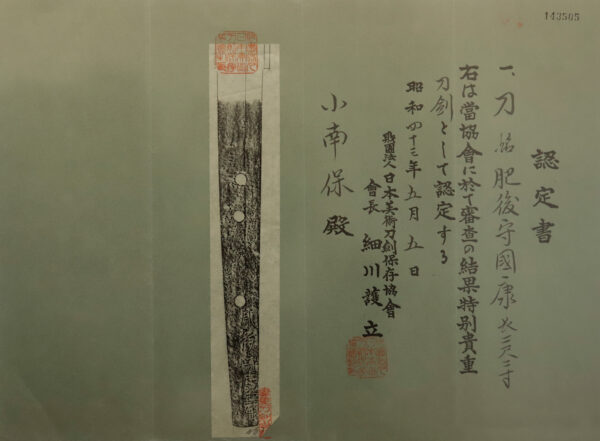 143505
認定書
一、刀 銘 肥後守國康 長二尺三寸
右は當協會に於て審査の結果特別貴重
刀劍として認定する
昭和四十三年五月五日
財團法人日本美術刀劍保存協會
會長 細川護立
小南保殿